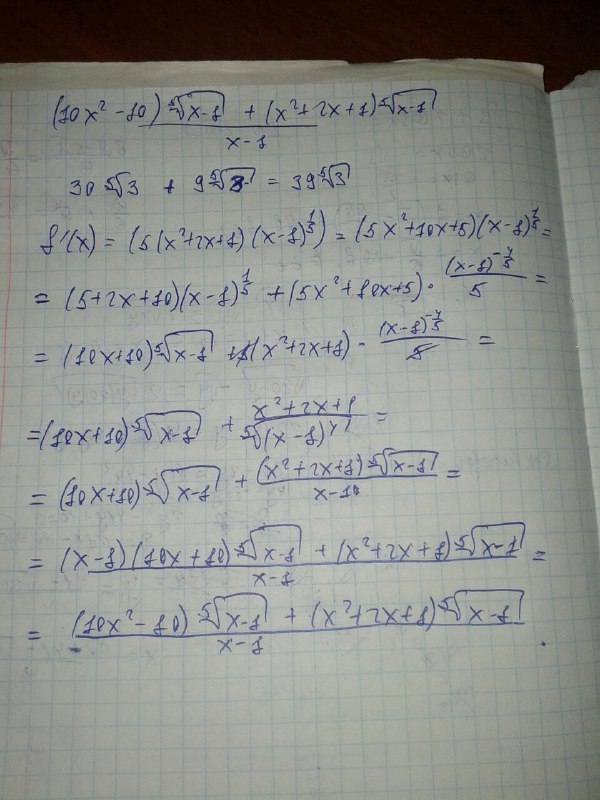 (10x² - 10) ⁵√(x-1) + (x²+2x+1) ⁵√(x-1) / x-1
30 ⁵√3 + 9 ⁵√3 = 39 ⁵√3
f'(x) = (5(x²+2x+1)(x-1)^(1/5)) = (5x²+10x+5)(x-1)^(1/5) =
= (5+2x+10)(x-1)^(1/5) + (5x²+10x+5) · (x-1)^(-4/5) / 5 =
= (10x+10) ⁵√(x-1) + (x²+2x+1) · (x-1)^(-4/5) / =
= (10x+10) ⁵√(x-1) + x²+2x+1 / ⁵√((x-1)⁴) =
= (10x+10) ⁵√(x-1) + (x²+2x+1) ⁵√(x-1) / x-1 =
= (x-1)(10x+10) ⁵√(x-1) + (x²+2x+1) ⁵√(x-1) / x-1 =
= (10x²-10) ⁵√(x-1) + (x²+2x+1) ⁵√(x-1) / x-1